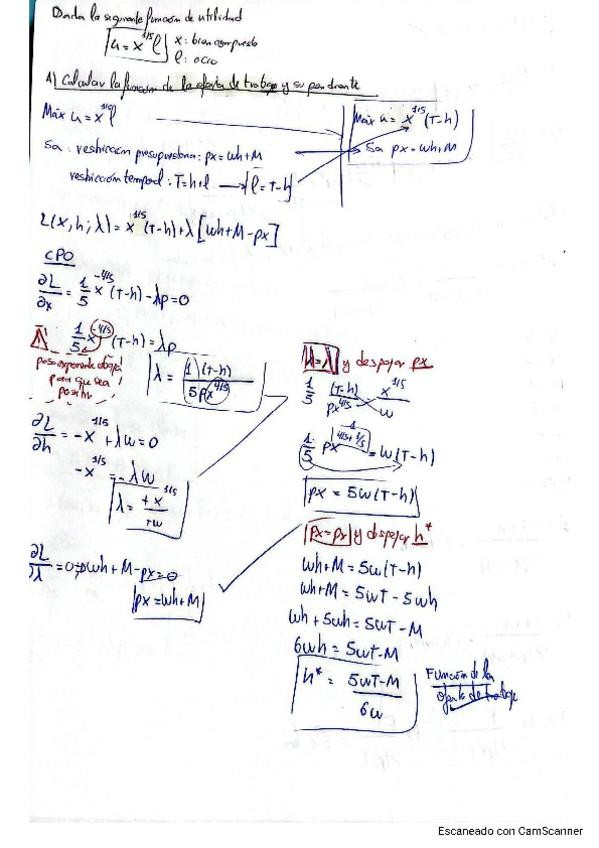 Dada la siguiente función de utilidad
u = x^1/5 l   x: bien compuesto
l: ocio
A) Calcular la función de la oferta de trabajo y su pendiente
Máx u = x^1/5 l
Sa: restricción presupuestaria: px = wh + M
restricción temporal: T = h + l → l = T - h
Máx u = x^1/5 (T-h)
Sa px = wh + M
L(x, h; λ) = x^1/5 (T-h) + λ[wh + M - px]
CPO
∂L/∂x = 1/5 x^-4/5 (T-h) - λp = 0
1/5 x^-4/5 (T-h) = λp
paso exponente abajo
para que sea
positivo
λ = 1 (T-h) / 5px^4/5
∂L/∂h = -x^1/5 + λw = 0
-x^1/5 = -λw
λ = +x^1/5 / +w
∂L/∂λ = 0 → wh + M - px = 0
px = wh + M
λ = λ y despejar px
1/5 (T-h)/px^4/5 = x^1/5/w
1/5 px^4/5+1/5 = w(T-h)
1
px = 5w(T-h)
px = px y despejar h*
wh + M = 5w(T-h)
wh + M = 5wT - 5wh
wh + 5wh = 5wT - M
6wh = 5wT - M
h* = 5wT - M / 6w
Función de la
oferta de trabajo
Escaneado con CamScanner